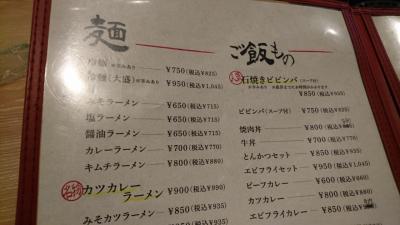 麺
冷麺 ※辛みあり ¥750(税込¥825)
冷麺(大盛) ※辛みあり ¥950(税込¥1,045)
みそラーメン ¥650(税込¥715)
塩ラーメン ¥650(税込¥715)
醤油ラーメン ¥650(税込¥715)
カレーラーメン ¥700(税込¥770)
キムチラーメン ¥800(税込¥880)
名物 カツカレーラーメン ¥900(税込¥990)
みそカツラーメン ¥850(税込¥935)
ご飯もの
石焼きビビンバ(スープ付)
¥850(税込¥935)
ビビンバ(スープ付) ¥750(税込¥825)
焼肉丼 ¥800(税込
牛丼 ¥700(税込¥770)
とんかつセット ¥850(税込¥935)
エビフライセット ¥950(税込¥1,045)
ビーフカレー ¥600(税込¥660)
カツカレー ¥800(税込¥880)
エビフライカレー ¥850(税込